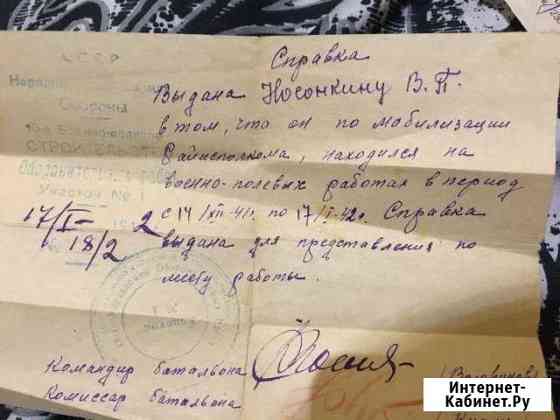 СССР
Обороны
СТРОИТЕЛЬСТВО
Участок № 1
17/I- 2
18/2
Справка
Выдана Носонкину В.П.
в том, что он по мобилизации
Райисполкома, находился на
военно-полевых работах в период
с 14/XII-41г. по 17/I-42г. Справка
выдана для представления по
месту работы.
Командир батальона
Комиссар батальона
Интернет-
Кабинет.Ру